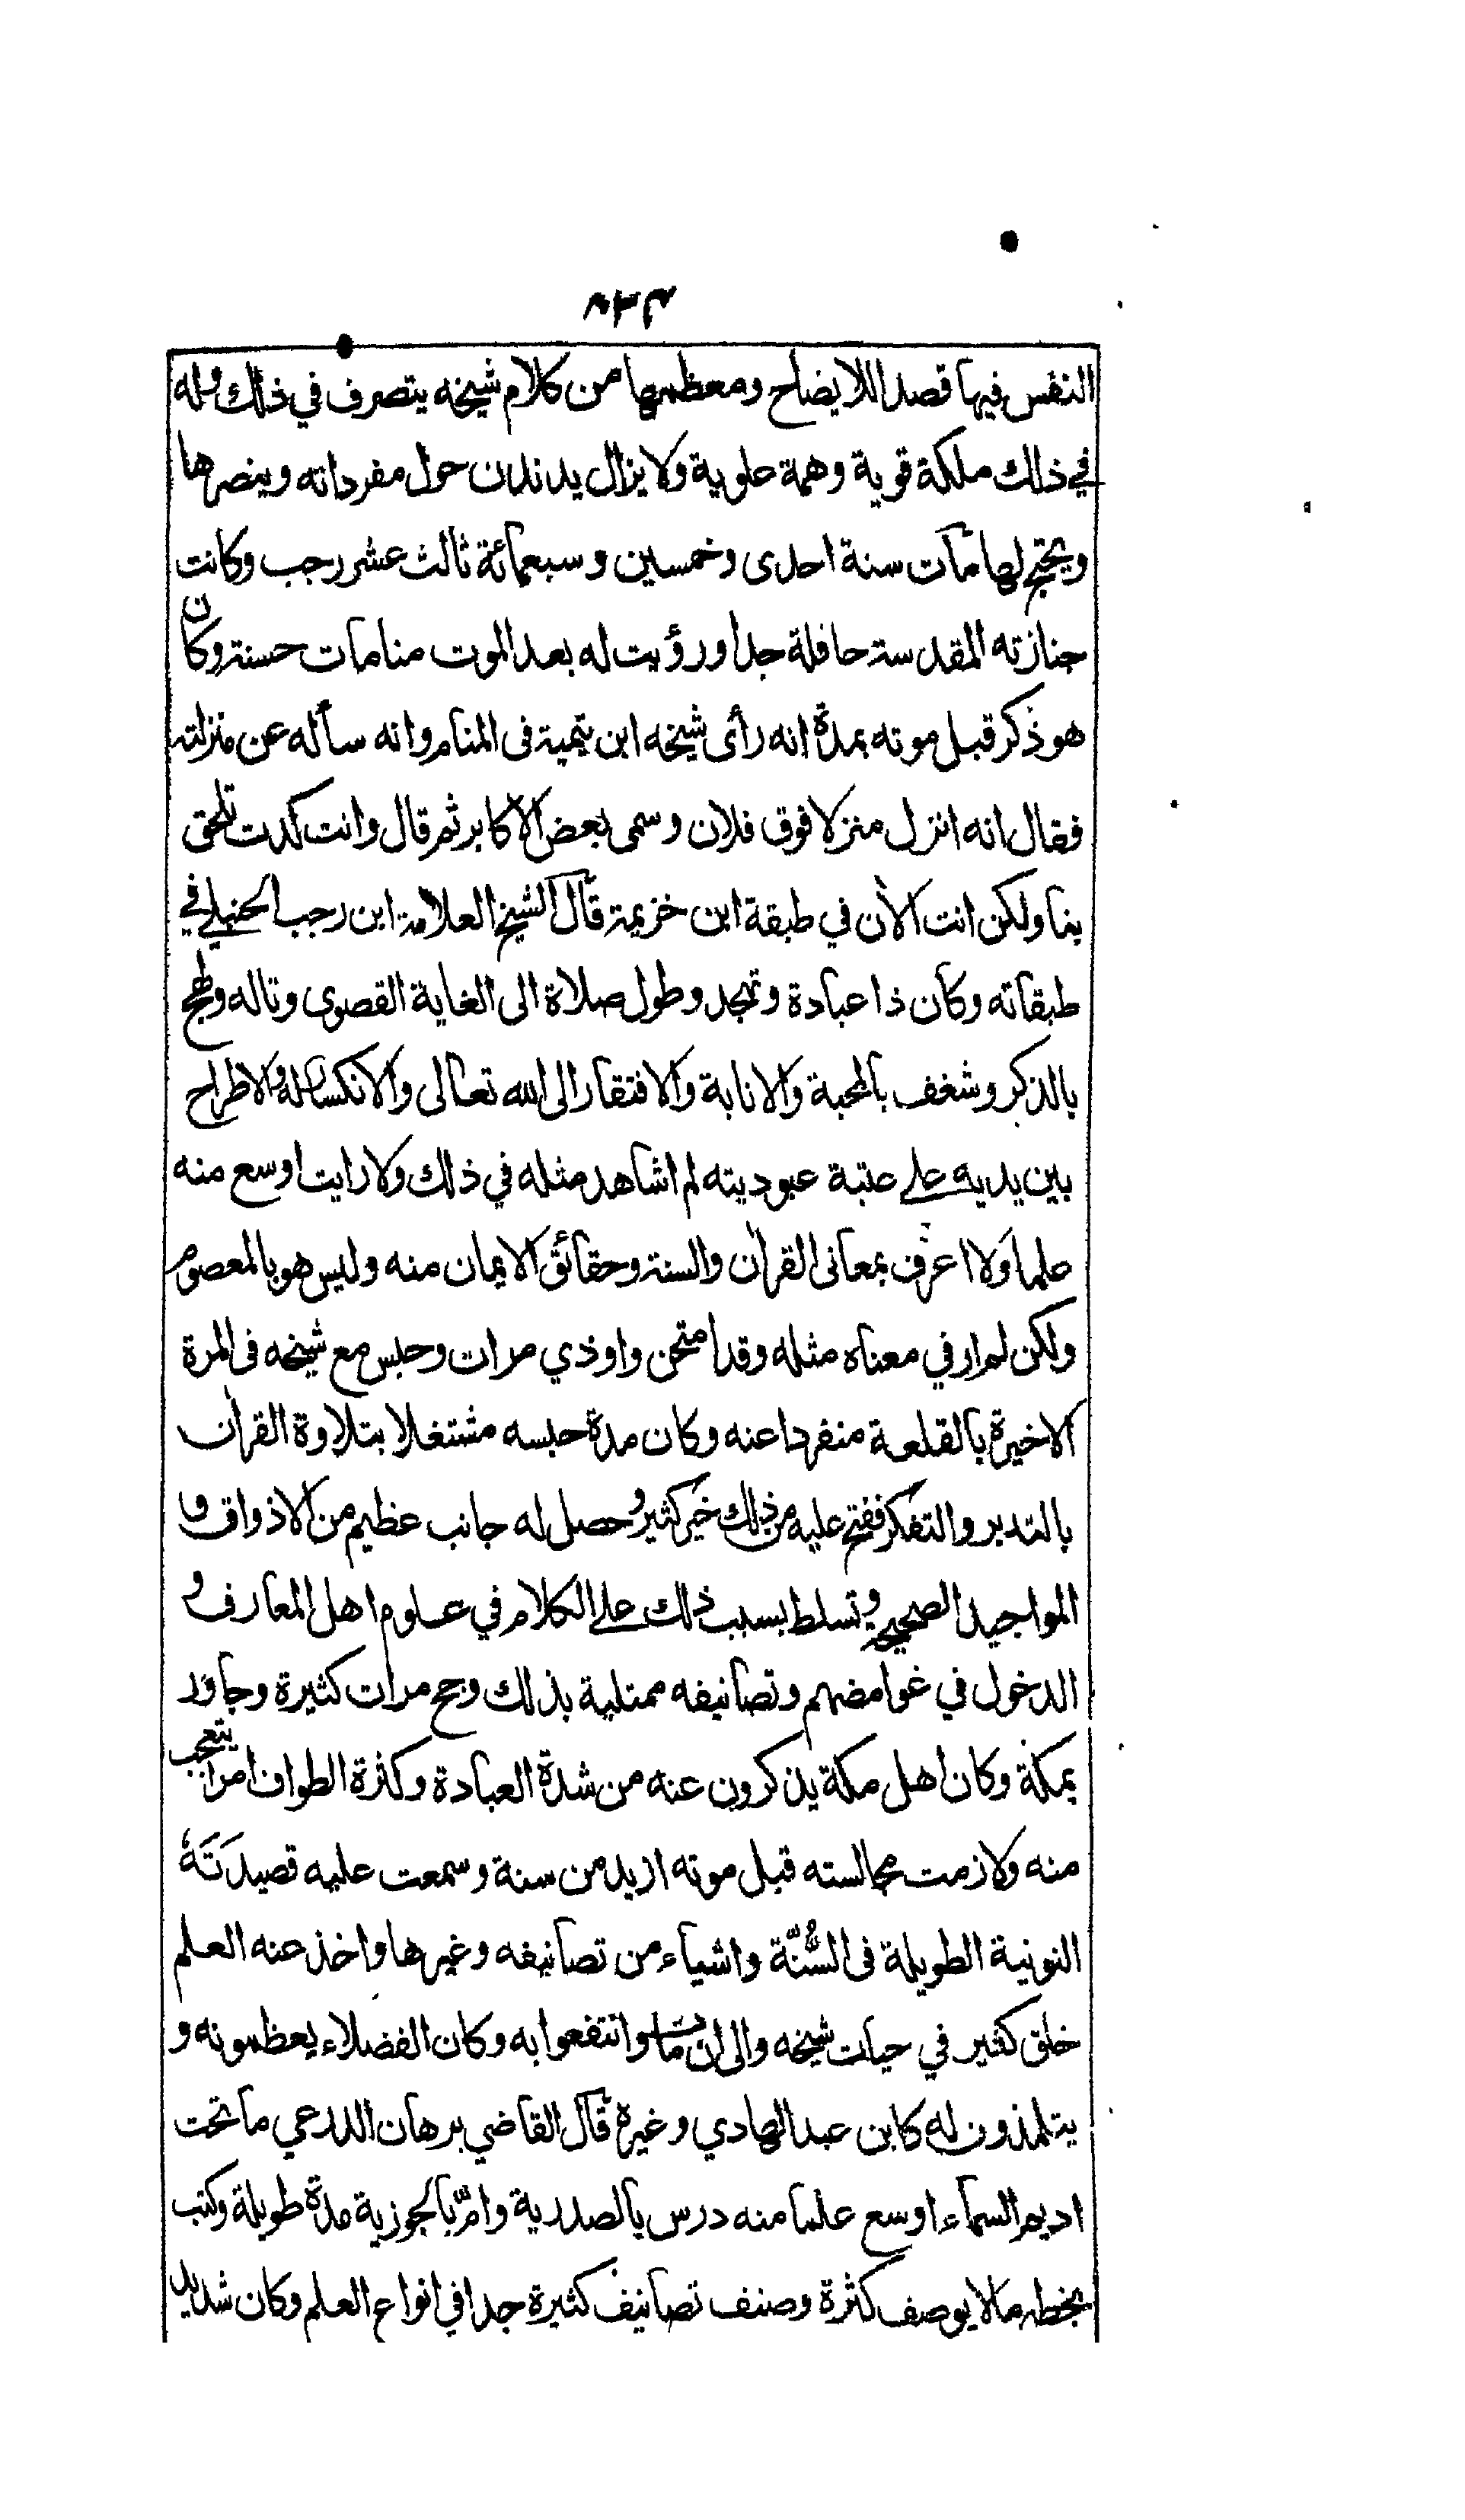 النفس فيها قصدا للايضاح ومعظمها من كلام شيخه يتصرف في ذلك وله
في ذلك ملكة قوية وهمة علوية ولا يزال يدندن حول مفرداته وينصرها
ويحتج لها مات سنة احدى وخمسين وسبعمائة ثالث عشر رجب وكانت
جنازته المقدسة حافلة جدا ورؤيت له بعد الموت منامات حسنة وكان
هو ذكر قبل موته بمدة انه رأى شيخه ابن تيمية فى المنام وانه سأله عن منزلته
فقال انه انزل منزلا فوق فلان وسمى بعض الاكابر ثم قال وانت كدت تلحق
بنا ولكن انت الأن في طبقة ابن خزيمة قال الشيخ العلامة ابن رجب الحنبلي في
طبقاته وكان ذا عبادة وتهجد وطول صلاة الى الغاية القصوى وتاله ولهج
بالذكر وشغف بالمحبة والانابة والافتقار الى الله تعالى والانكسار له والاطراح
بين يديه على عتبة عبوديته لم اشاهد مثله في ذلك ولا رايت اوسع منه
علما ولا اعرف بمعانى القرأن والسنة وحقائق الايمان منه وليس هو بالمعصوم
ولكن لم ار في معناه مثله وقد امتحن واوذي مرات وحبس مع شيخه فى المرة
الاخيرة بالقلعة منفردا عنه وكان مدة حبسه مشتغلا بتلاوة القرأن
بالتدبر والتفكر ففتح عليه من ذلك خير كثير وحصل له جانب عظيم من الاذواق و
المواجيد الصحيحه وتسلط بسبب ذلك على الكلام في علوم اهل المعارف و
الدخول في غوامضهم وتصانيفه ممتلية بذلك وحج مرات كثيرة وجاور
بمكة وكان اهل مكة يذكرون عنه من شدة العبادة وكثرة الطواف امرا يتعجب
منه ولازمت مجالسته قبل موته ازيد من سنة وسمعت عليه قصيدَتَهُ
النونية الطويلة فى السُّنّة واشياء من تصانيفه وغيرها واخذ عنه العلم
خلق كثير في حيات شيخه والى ان مات وانتفعوا به وكان الفضلاء يعظمونه و
يتلمذون له كابن عبد الهادي وغيرة قال القاضي برهان الدرعي ما تحت
اديم السماء اوسع علما منه درس بالصدرية وامّ بالجوزية مدة طويلة وكتب
بخطه مالا يوصف كثرة وصنف تصانيف كثيرة جدا في انواع العلم وكان شديد